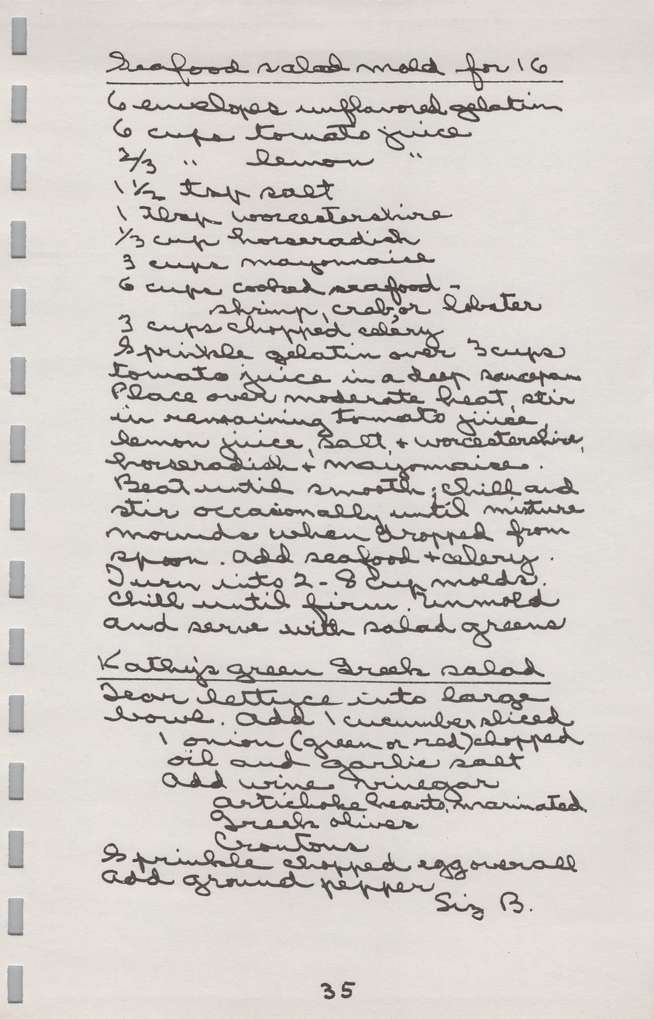 Seafood salad mold for 16
6 envelopes unflavored gelatin
6 cups tomato juice
2/3 " lemon "
1 1/2 tsp salt
1 Tbsp worcestershire
1/3 cup horseradish
3 cups mayonnaise
6 cups cooked seafood -
shrimp, crab, or lobster
3 cups chopped celery
Sprinkle gelatin over 3 cups
tomato juice in a deep saucepan
Place over moderate heat, stir
in remaining tomato juice,
lemon juice, salt, + worcestershire,
horseradish + mayonnaise.
Beat until smooth; chill and
stir occasionally until mixture
mounds when dropped from
spoon. Add seafood + celery.
Turn into 2 - 8 cup molds.
Chill until firm. Unmold
and serve with salad greens
Kathy's green Greek salad
Tear lettuce into large
bowl. Add 1 cucumber sliced
1 onion (green or red) chopped
oil and garlic salt
Add wine vinegar
Artichoke hearts, marinated
Greek olives
Croutons
Sprinkle chopped egg over all
Add ground pepper
Siz B.
35